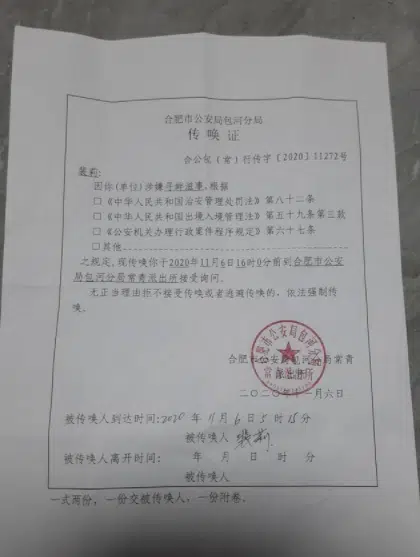 合肥市公安局包河分局
传唤证
合公包(青)行传字〔2020〕11272号
因你(单位)涉嫌寻衅滋事,根据
□《中华人民共和国治安管理处罚法》第八十二条
□《中华人民共和国出境入境管理法》第五十九条第三款
□《公安机关办理行政案件程序规定》第六十七条
□其他
之规定,现传唤你于2020年11月6日16时0分前到合肥市公安
局包河分局常青派出所接受询问。
无正当理由拒不接受传唤或者逃避传唤的,依法强制传
唤。
合肥市公安局包河分局常青
派出所
二〇二〇年十一月六日
被传唤人到达时间:2020年11月6日5时15分
被传唤人
被传唤人离开时间: 年 月 日 时 分
被传唤人
一式两份,一份交被传唤人,一份附卷。